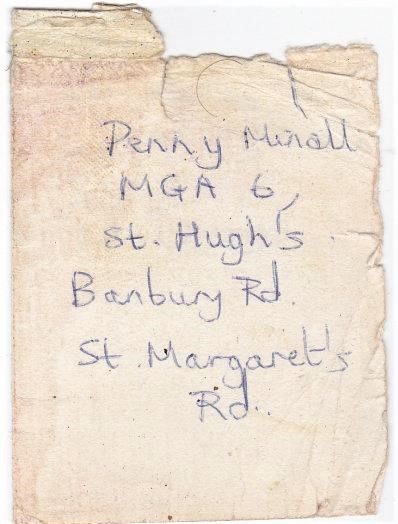 Penny Minall
MGA 6,
St. Hugh's
Banbury Rd.
St. Margaret's
Rd.